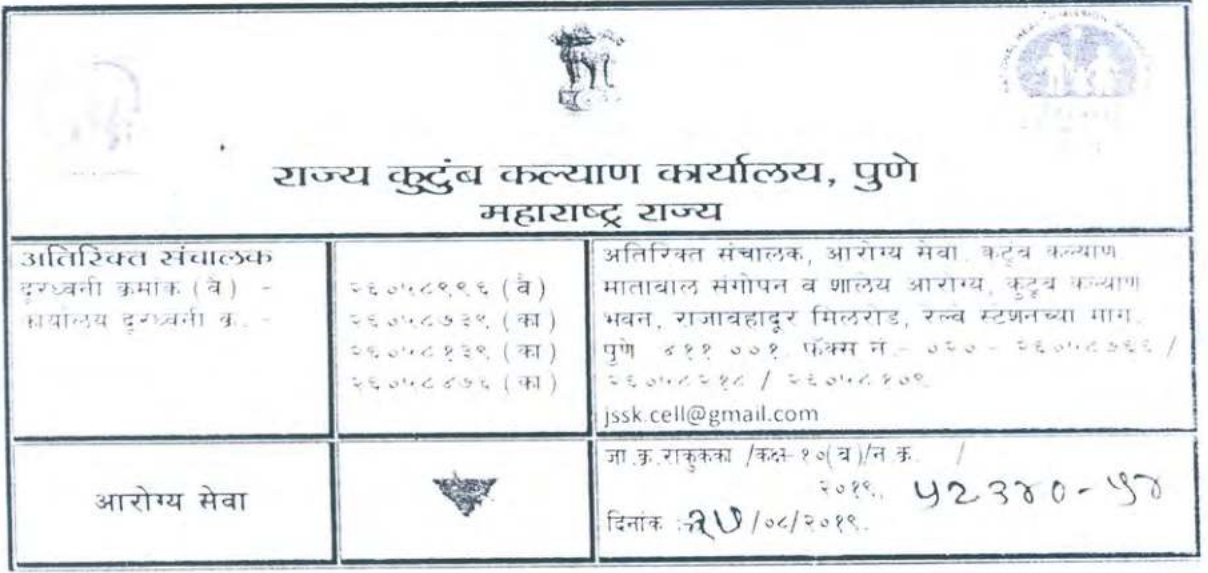 राज्य कुटुंब कल्याण कार्यालय, पुणे
महाराष्ट्र राज्य
अतिरिक्त संचालक
दूरध्वनी क्रमांक (वै) -
कार्यालय दूरध्वनी क्र. -
२६०५८९९६ (वै)
२६०५८७३९ (का)
२६०५८१३९ (का)
२६०५८४७६ (का)
अतिरिक्त संचालक, आरोग्य सेवा, कुटुंब कल्याण,
माताबाल संगोपन व शालेय आरोग्य, कुटुंब कल्याण
भवन, राजाबहादूर मिलरोड, रेल्वे स्टेशनच्या मागे,
पुणे ४११ ००१. फॅक्स नं.- ०२० - २६०५८७६६ /
२६०५८२१८ / २६०५८१०९
jssk.cell@gmail.com
आरोग्य सेवा
जा.क्र.राकुकका /कक्ष-१०(ब)/न.क्र. /
२०१९,
दिनांक :- /०८/२०१९.